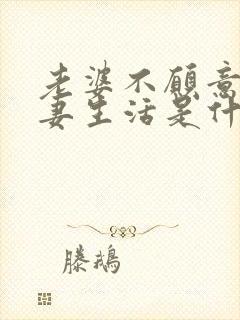 老婆不愿意
妻生活是什
滕鹅